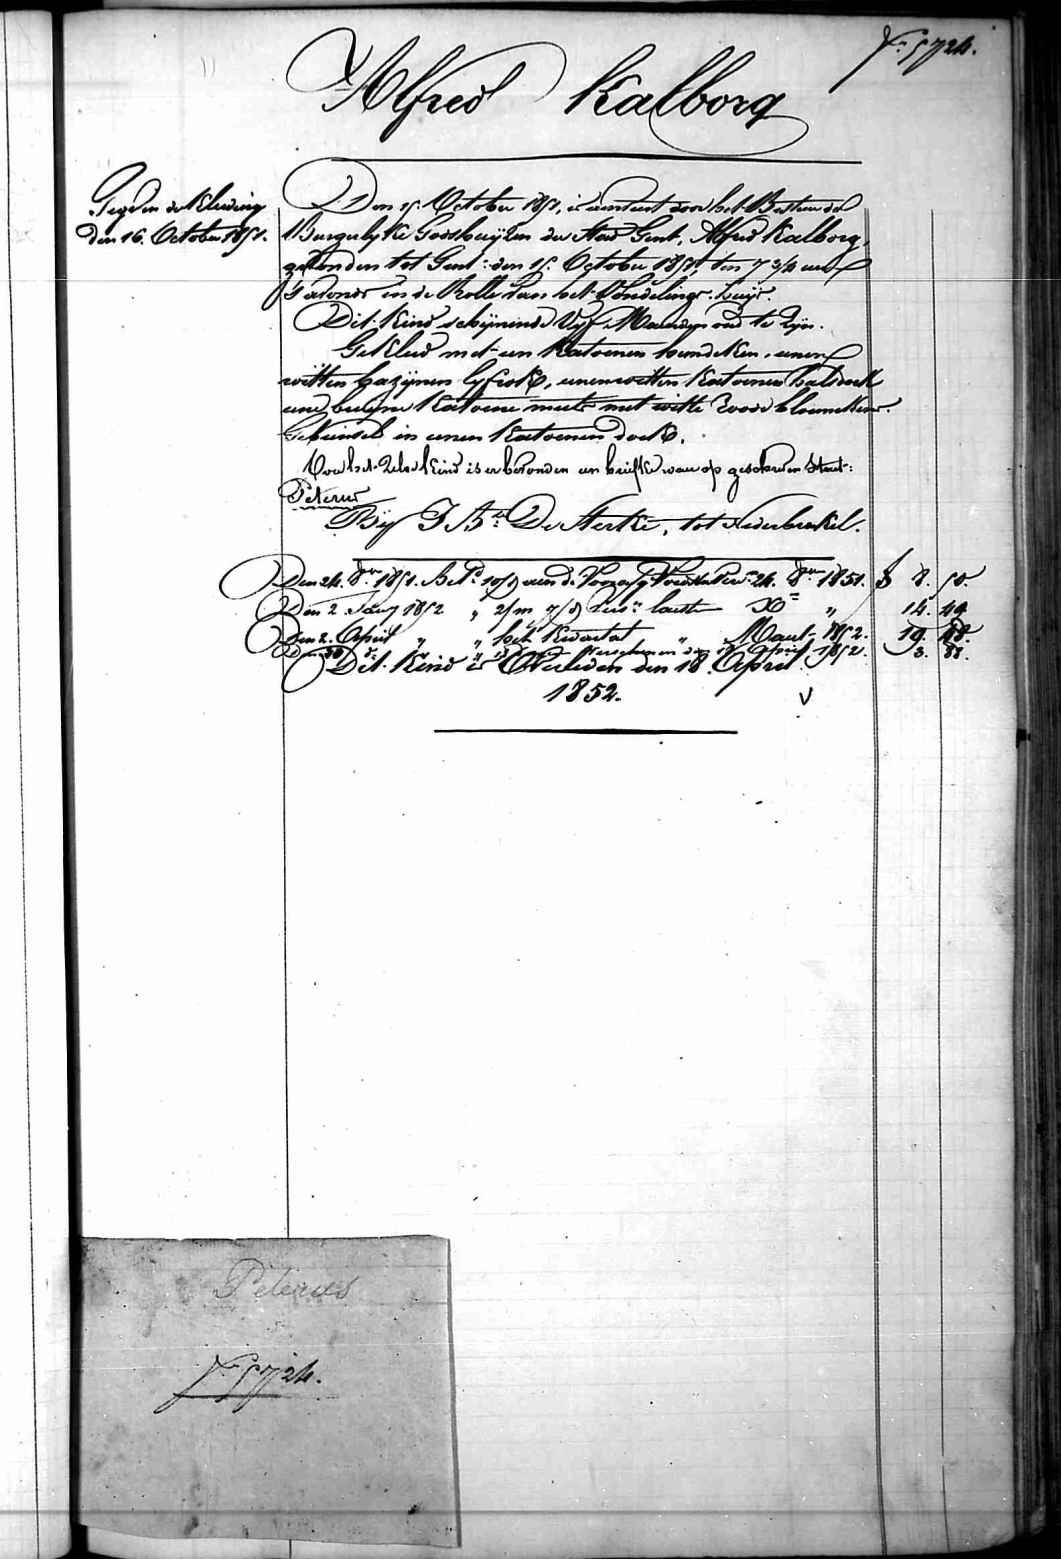 N.º 5724.
Alfred Kalborg
Gegeven de Kleeding
den 16. October 1851.
Den 15. October 1851, is door het Bestuer der
Burgerlyke Godshuyzen der Stad Gent, Alfred Kalborg,
gevonden tot Gent: den 15. October 1851, ten 7 3/4 uren
s'avonds in de Rolle van het Vondelings-huys.
Dit kind schijnende Vyf Maenden oud te Zyn.
Gekleed met een Katoenen hemdeken, eenen
witten bazynen lyfrok, eenen witten Katoenen halsdoek
eene Katoene muts met witte bloemekens.
in eenen Katoenen doek.
Voor het Zelve kind is er bevonden een briefke waer op geschreven Staet:
Peterus
By J. Bte De Sterke, tot Nederbrakel.
Den 24. 8ber 1851. Bet. 24. 8ber 1851. 8. 50.
Den 2 Janry 1852 " 2/m " 14. 49
Den 2. April " " het Kwartal " Maart 1852. 19. 48.
Verschenen den 18 April 1852. 3. 88.
Dit Kind is Overleden den 18. April
1852.
Peterus
N.º 5724.